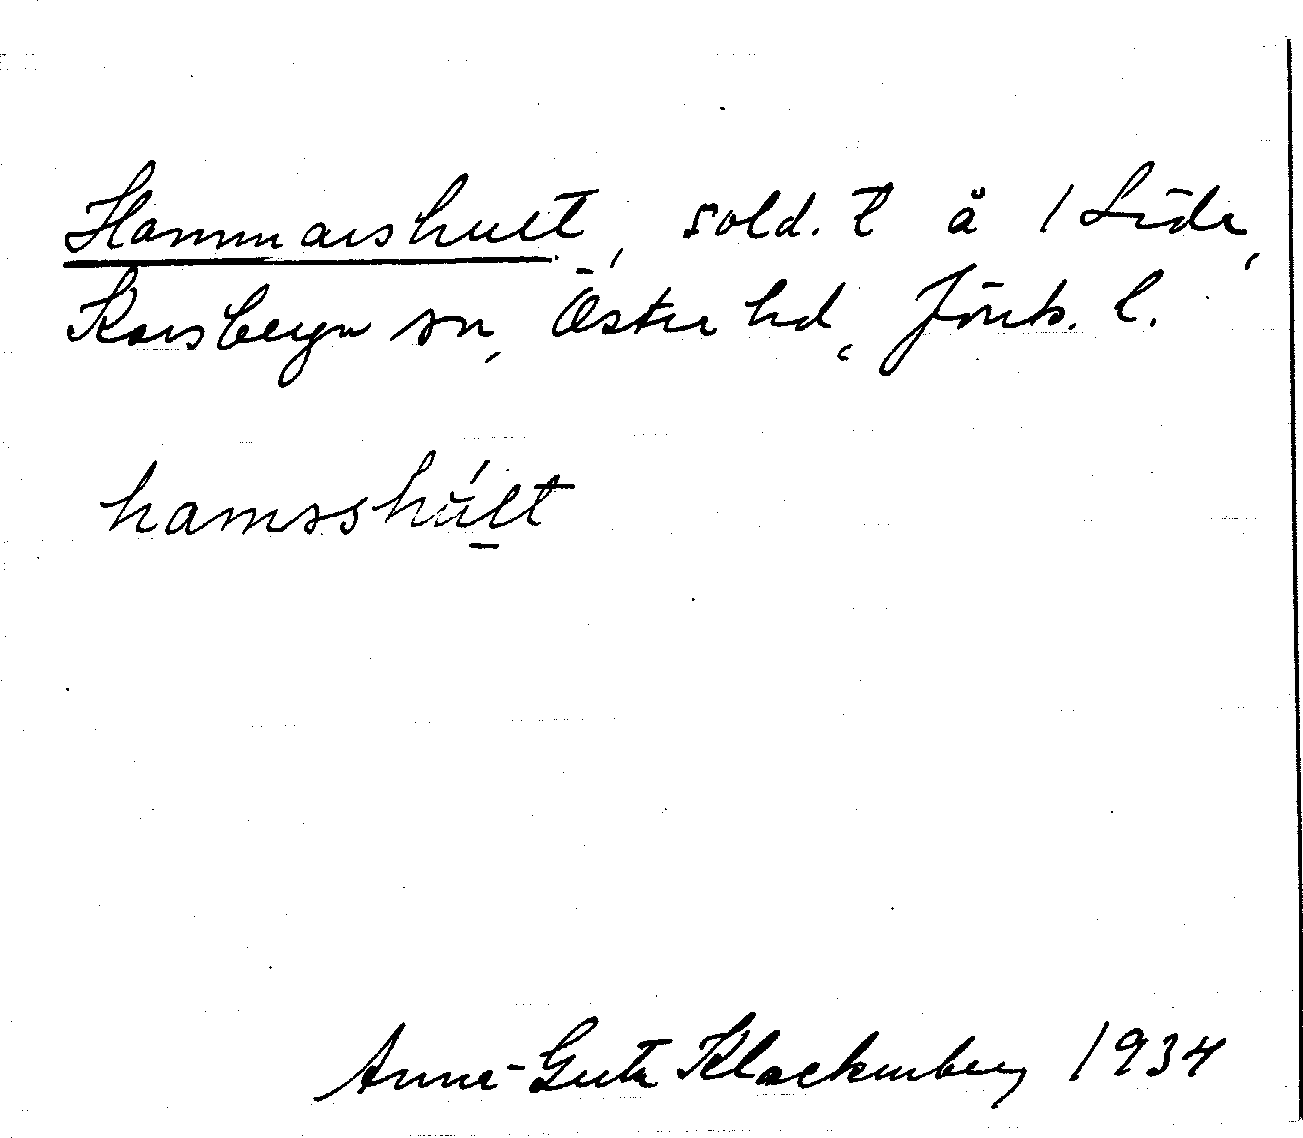 Hammarshult, sold. t å 1 Lida,
Korsberga sn, Östra hd, Jönk. l.
hamsshúlt
Anne-Greta Klackenberg 1934